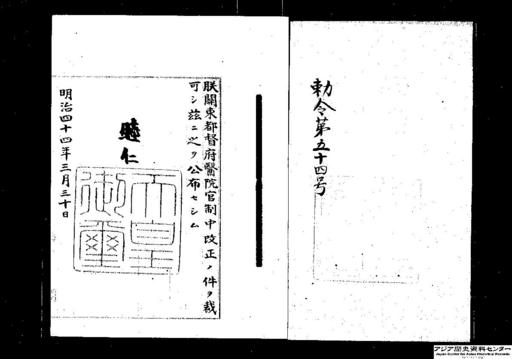 勅令第五十四号
朕關東都督府醫院官制中改正ノ件ヲ裁
可シ茲ニ之ヲ公布セシム
睦仁
天皇
御璽
明治四十四年三月三十日
アジア歴史資料センター
Japan Center for Asian Historical Records